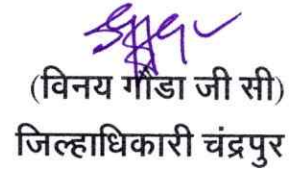 (विनय गौडा जी सी)
जिल्हाधिकारी चंद्रपुर